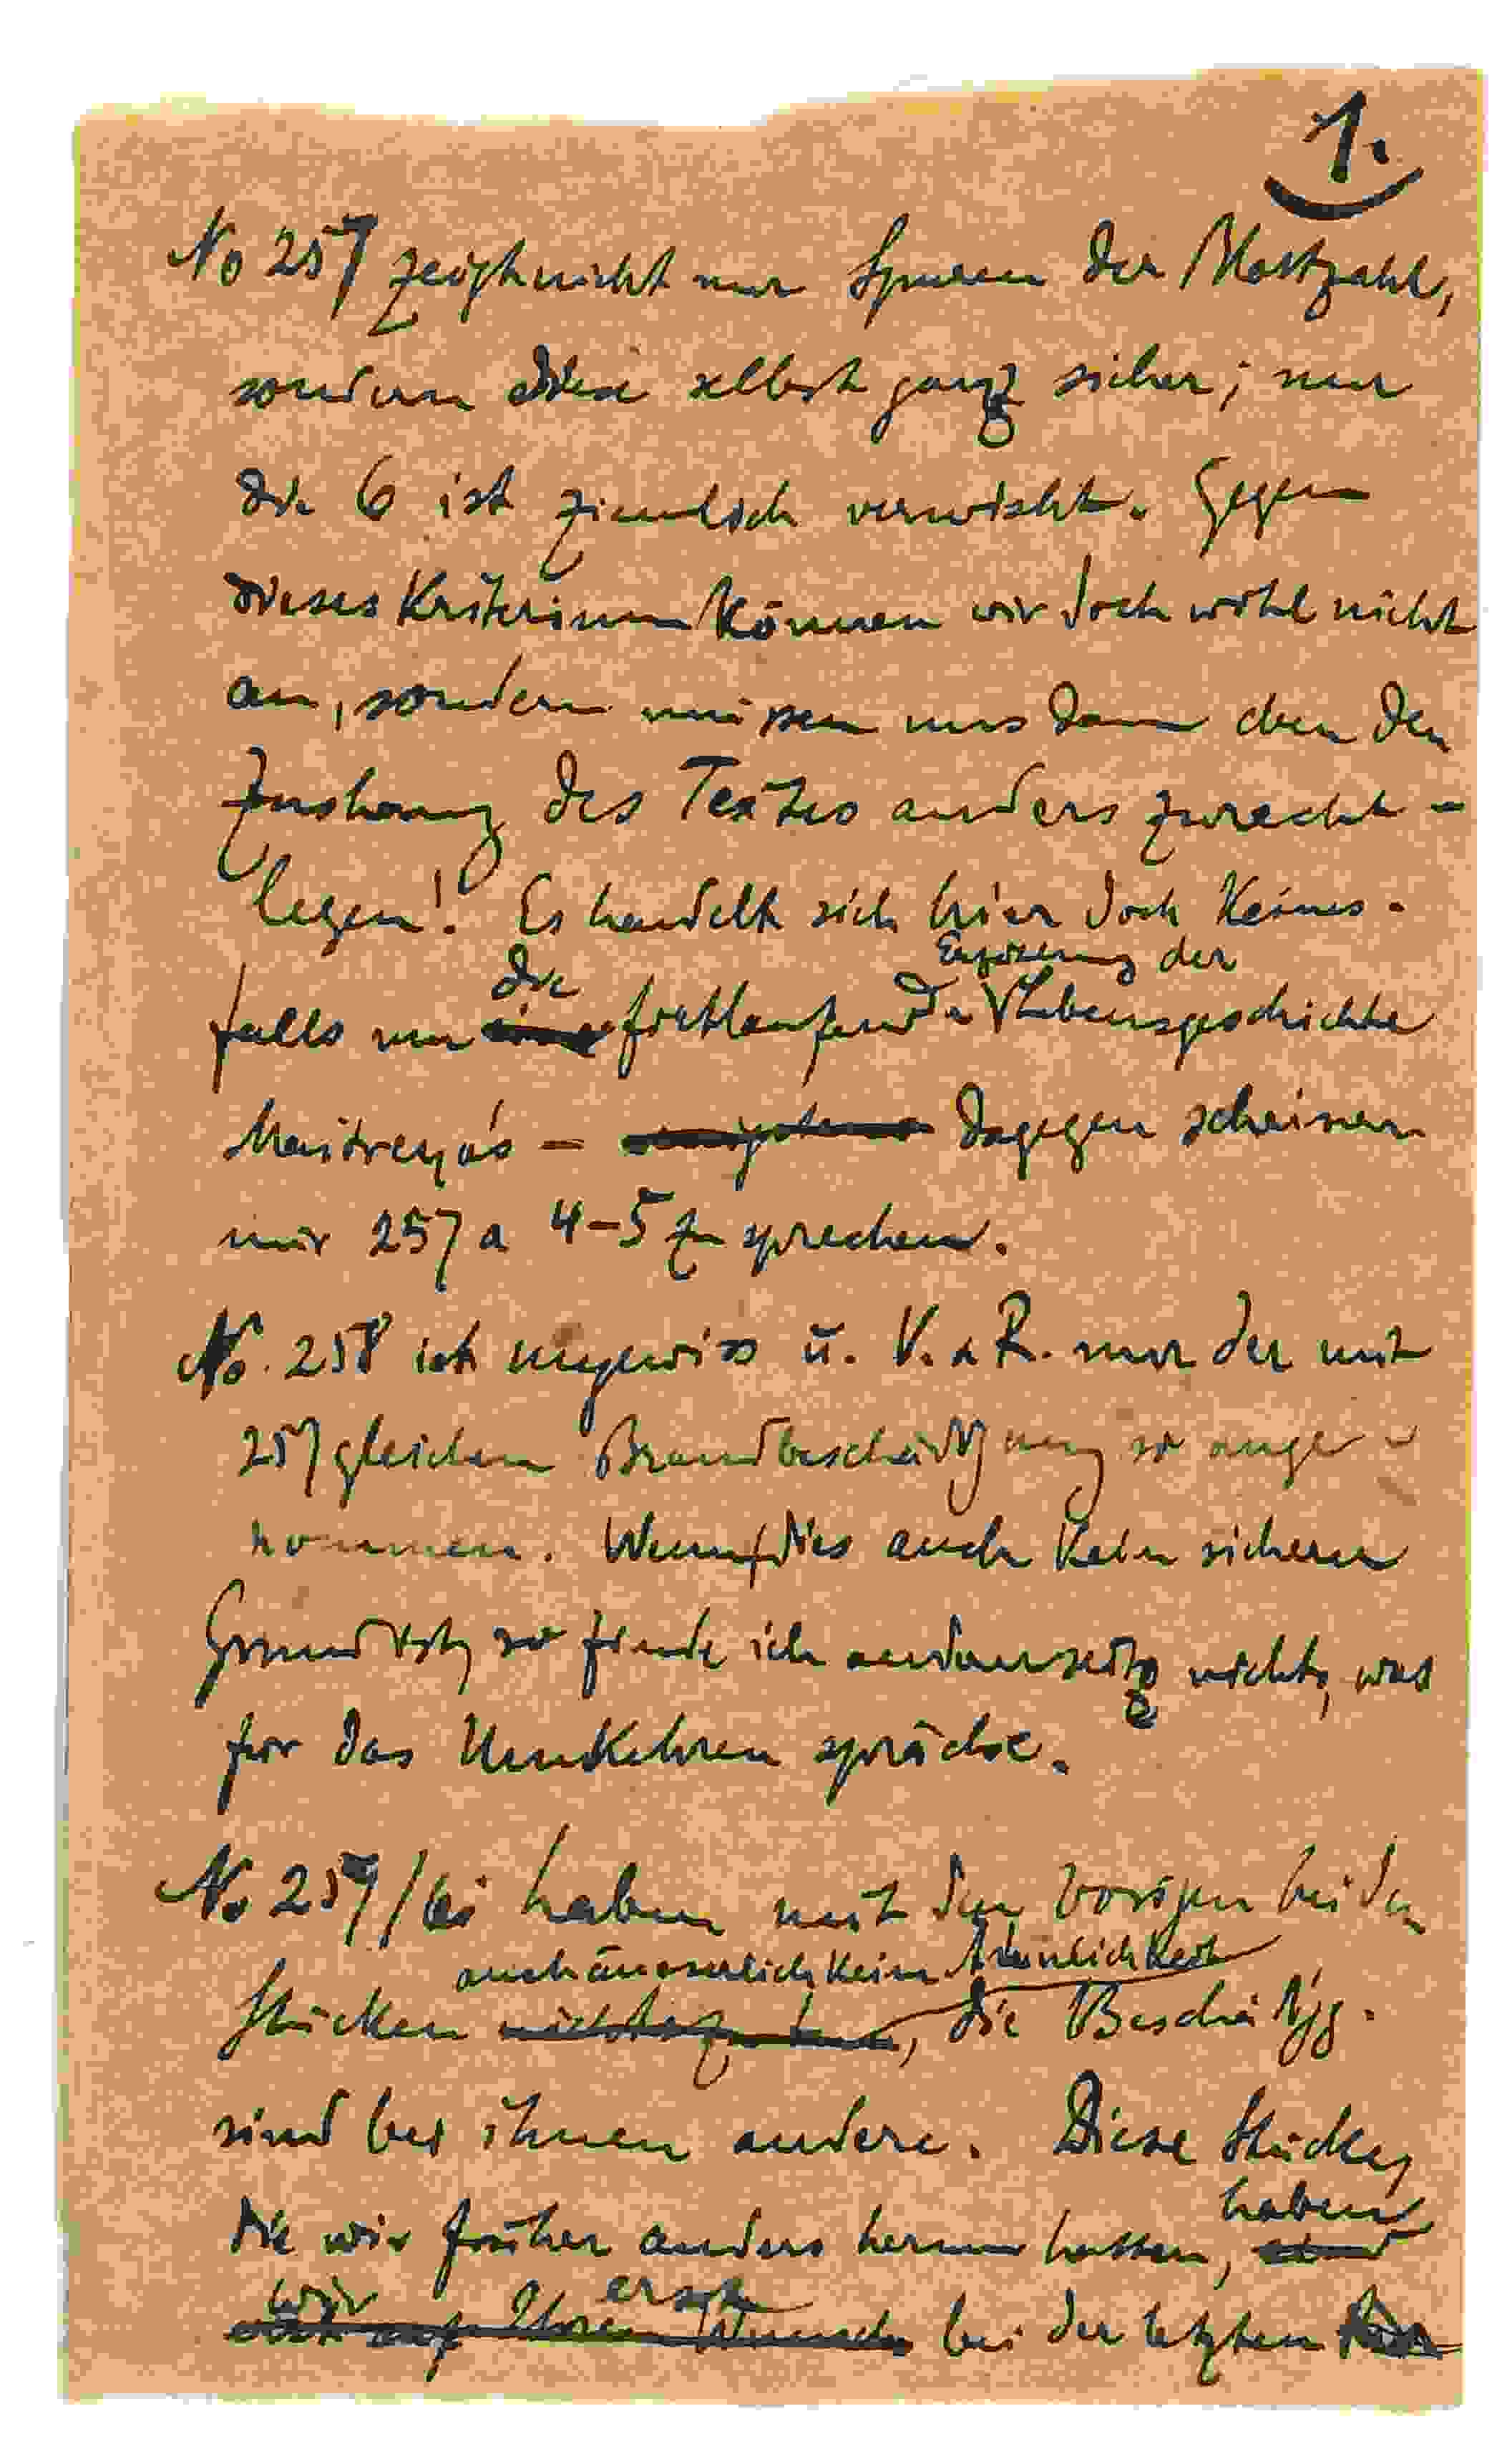 1.
No 257 zeigt nicht nur Spuren der Blattzahl,
sondern diese selbst ganz sicher; nur
die 6 ist ziemlich verwischt. Gegen
dieses Kriterium können wir doch wohl nicht
an, sondern müssen uns dann eben den
Zushang des Textes anders zurecht-
legen! Es handelt sich hier doch keines-
die Erzälung der
falls um fortlaufende Lebensgeschichte
Maitreya's – dagegen scheinen
mir 257 a 4–5 zu sprechen.
No. 258 ist ungewiss u. V. & R. nur der mit
257 gleichen Brandbeschädigung so ange-
nommen. Wenn dies auch kein sicherer
Grund ist, so finde ich andrerseits nichts, was
für das Umkehren spräche.
No 259/ haben mit den vorigen beiden
auch äusserlich keine Ähnlichkeit
Stücken, die Beschädigg.
sind bei ihnen andere. Diese Stücke,
haben
die wir früher anders herum hatten,
wir erst
bei der letzten